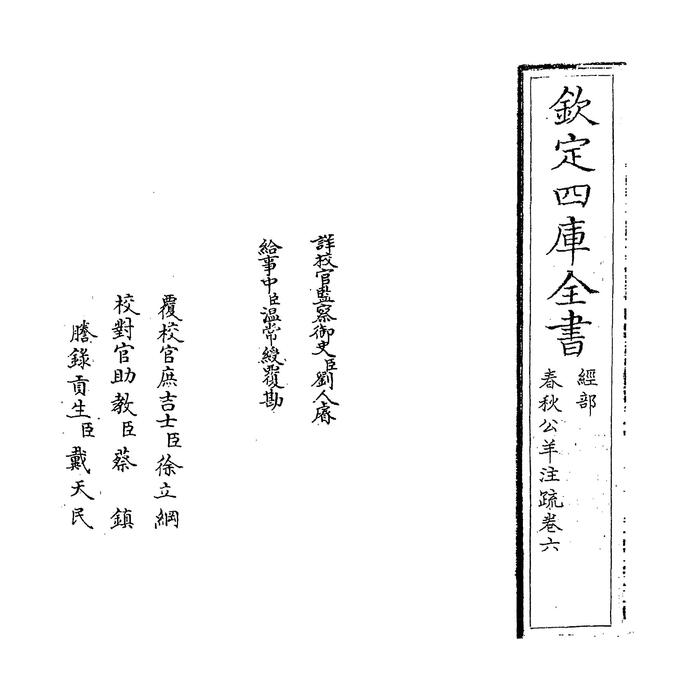 欽定四庫全書
經部
春秋公羊注疏卷六
詳校官監察御史臣劉人睿
給事中臣溫常綬覆勘
覆校官庶吉士臣徐立綱
校對官助教臣蔡鎮
謄錄貢生臣戴天民